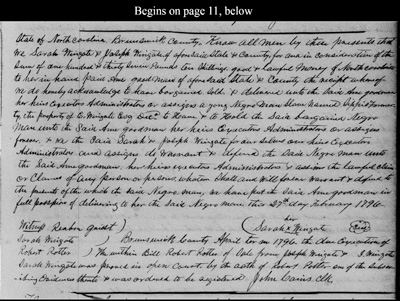 Begins on page 11, below
State of North Carolina Brunswick County. Know all men by these presents that
we Sarah Wingate & Joseph Wingate of aforesaid State & County, for and in consideration of the
Sum of one hundred & thirty Seven Pounds ten Shilling good & lawful money of North Carolina
to her in hand paid Ann good man of aforesaid State & County the receipt whereof
we do hereby acknowledge to have bargained Sold & delivered unto the Said Ann goodman
her heirs Executors Administrators or assigns a young Negro man Slave named
the property of E. Wingate Esq Decd To Have & to Hold the Said bargained Negro
man unto the Said Ann goodman her heirs Executors Administrators or assigns
forever. & we the Said Sarah & Joseph Wingate for our selves our heirs Executors
Administrators and assigns do Warrant & defend the Said Negro man unto
the Said Ann goodman her heirs executors Administrators & assigns the lawful claim
or Claims of any person or persons whatever Shall and Will forever warrant & defend In
the presents of which the Said Negro man, we have put the Said Ann goodman in
full possession of delivering to her the Said Negro man this 27th day February 1796
her
Witness Reason
Sarah x Wingate
Sarah Wingate
Robert Potter
Brunswick County April term 1796 the due execution of
The within Bill Robert Potter of Sale from Joseph Wingate &
Sarah Wingate was proved in open Court by the oath of Robert Potter one of the Subscribing
Evidence thereto & was ordered to be registered John Cains Clk